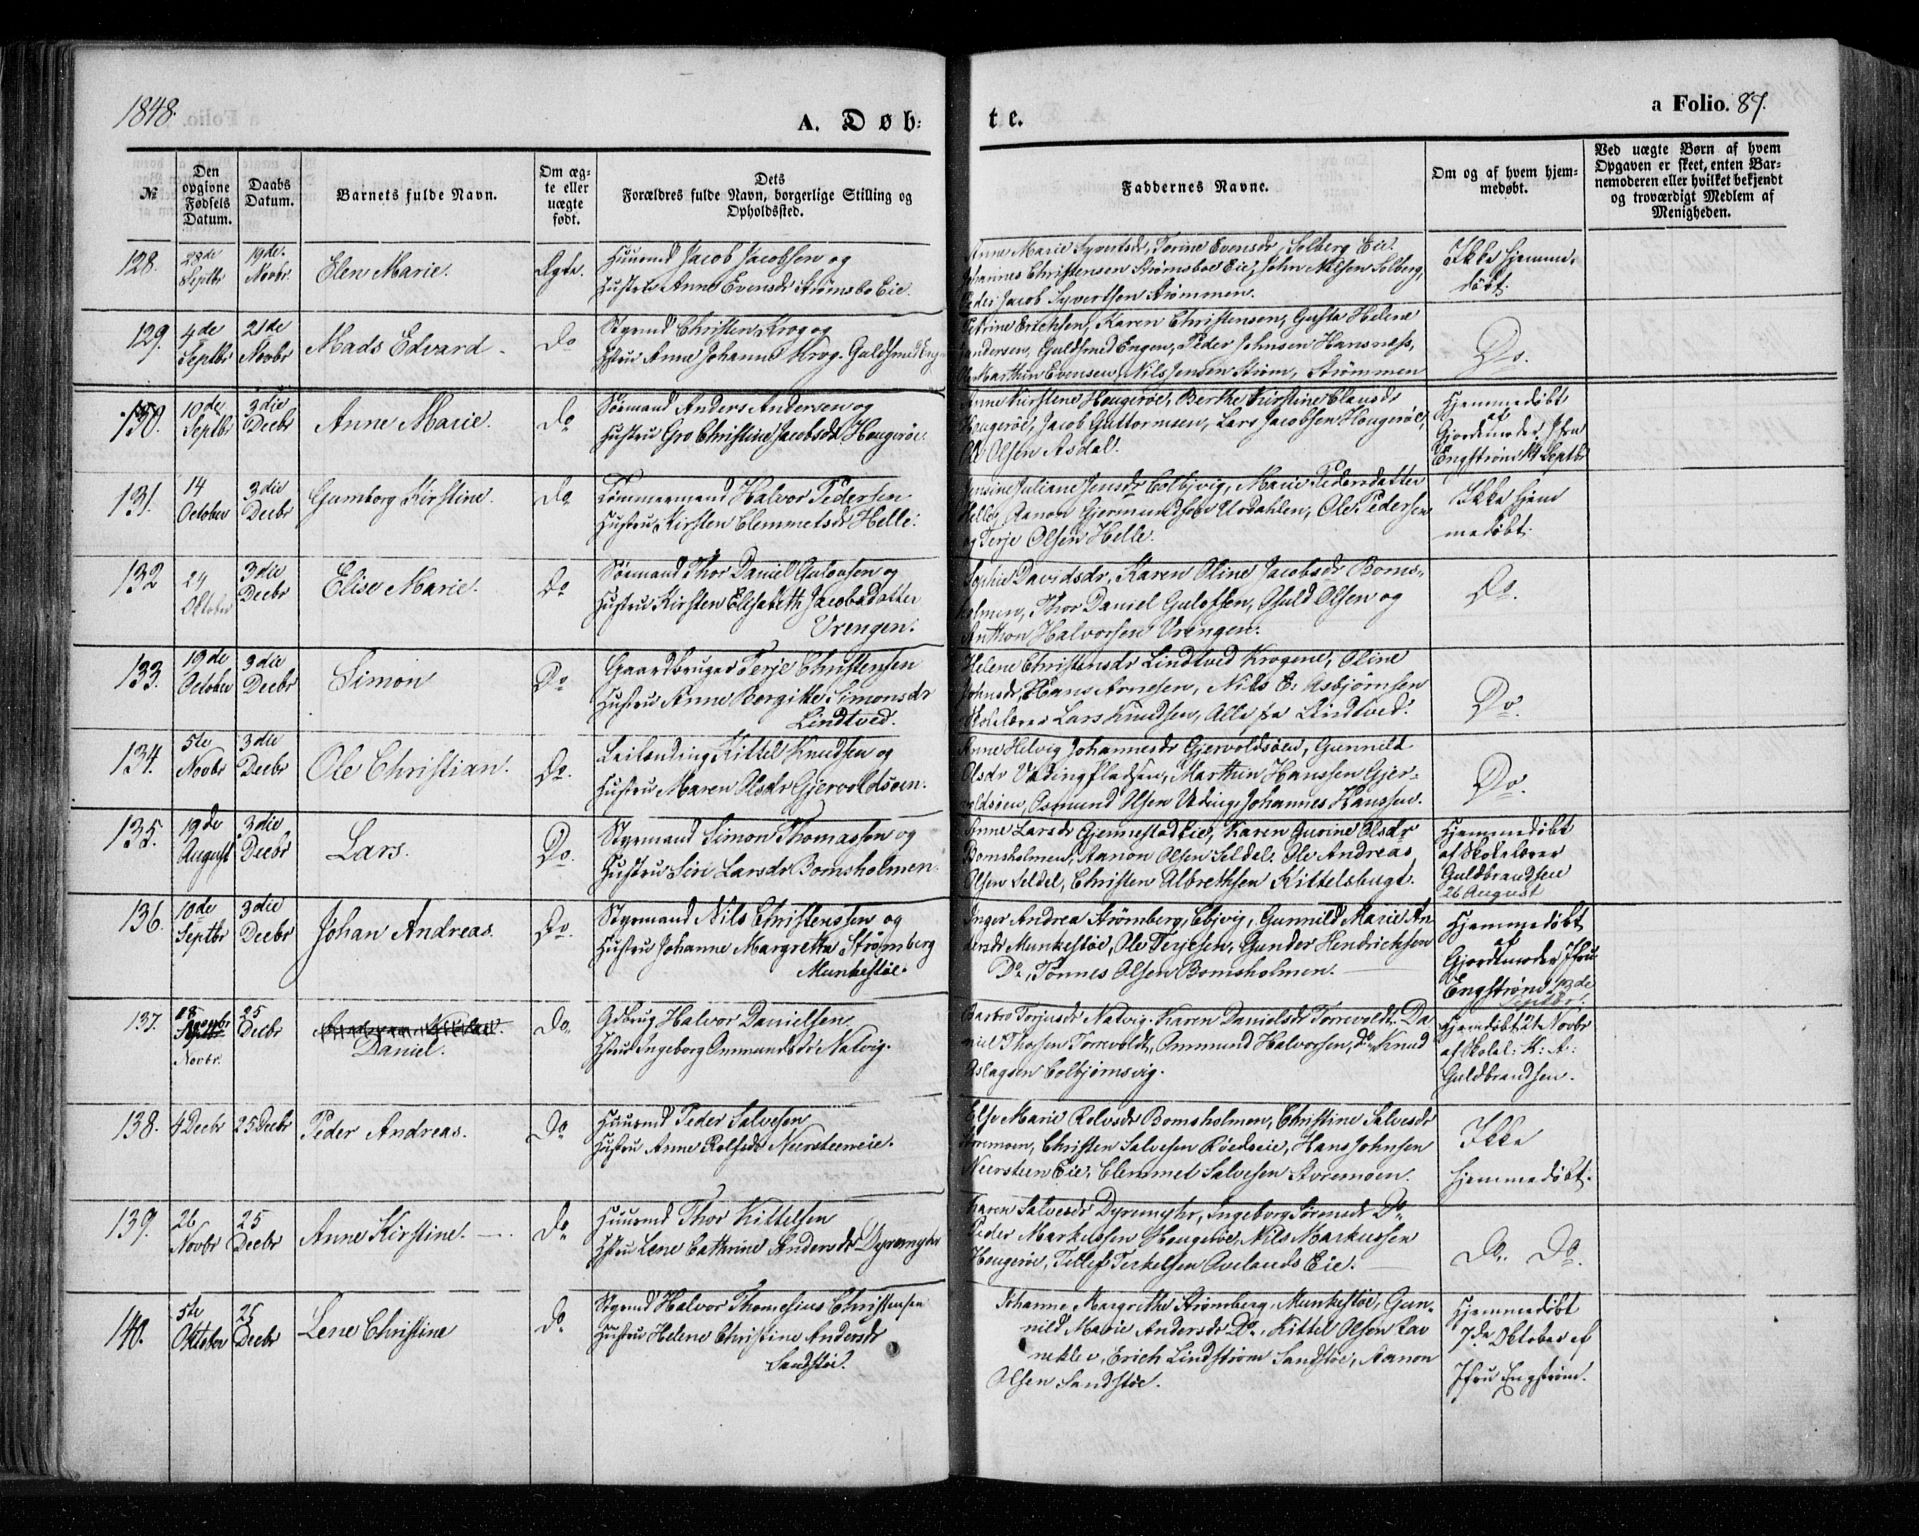 1848.
A. Døb-
te.
a Folio. 87.
№
Den opgivne Fødsels Datum.
Daabs Datum.
Barnets fulde Navn.
Om ægte eller uægte født.
Dets Forældres fulde Navn, borgerlige Stilling og Opholdssted.
Faddernes Navne.
Om og af hvem hjemmedøbt.
Ved uægte Børn af hvem Opgaven er skeet, enten Barnemoderen eller hvilket bekjendt og troværdigt Medlem af Menigheden.
128. 28de Septbr 19de Novbr. Elen Marie. Ægte.
Huusmd Jacob Jacobsen og
Hustru Anne Evensdr Strømsbo Eie.
Anne Marie Syvertsdr, Torine Evensdr, Solberg Eie.
Johannes Christensen Strømsboe Eie, John Nilsen Solberg,
Peder Jacob Syvertsen Strømmen.
Ikke hjemme-
døbt.
129. 4de Septbr 21de Novbr Mads Edvard Do
Styrmd Christen Krog og
Hstru Anne Johanne Krog. Guldsmed Engen
Petrine Erichsen, Karen Christensen, Gusta Helene
Andersen, Guldsmed Engen, Peder Johnsen Hansness,
Marthin Evensen, Nils Jensen Strøm, Strømmen
Do.
130. 10de Septbr 3die Decbr Anne Marie. Do
Sømand Anders Andersen og
Hustru Gro Christine Jacobsdr Hougerøe.
Anne Kirstene Hougerøe, Berthe Kirstine Clausdr
Hougerøe, Jacob Guttormsen, Lars Jacobsen Hougerøe,
Ole Olsen Asdal.
Hjemmedøbt
af
Gjordemoder Jfru
Engstrøm 14 Septbr
131. 14 October 3die Decbr Gumborg Kirstine. Do
Tømmermand Halvor Pedersen
Hustru Kirsten Clemmetsdr Helle.
Jensine Juliane Jensdr Colbjvig, Marie Pedersdatter
Helle, Aanon Gjermundsen Urdahlen, Ole Pedersen
og Terje Olsen Helle.
Ikke hjem
medøbt.
132 24 Oktober 3die Decbr Elise Marie. Do
Sømand Thor Daniel Gulovsen og
Hustru Kirsten Elisabeth Jacobsdatter
Vrengen.
Sophie Davidsdr, Karen Oline Jacobsdr Boms-
holmen, Thor Daniel Gulofsen, Osuld Olsen og
Anthon Halvorsen Vrengen.
Do.
133. 19de October 3die Decbr Simon Do
Gaardbruger Terje Christensen
Hustru Anne Borgitte Simonsdr
Lindtved.
Helene Christensdr Lindtved Krogene, Oline
Johnsdr, Hans Arnesen, Nils E: Asbjørnsen
Skolelærer Lars Knudsen, Alle fra Lindtved.
Do.
134. 5te Novbr 3die Decbr Ole Christian. Do.
Leilænding Kittel Knudsen og
Hustru Maren Olsdr Gjervoldsøen.
Anne Helvig Johannesdr Gjervoldsøen, Gunnild
Olsdr Uding Pladsen, Marthin Hanssen Gjer-
voldsøen, Osmund Olsen Uding, Johannes Hanssen.
Do.
135. 19de August 3die Decbr Lars. Do.
Styrmand Simon Thomassen og
Hustru Siri Larsdr Bomsholmen.
Anne Larsdr Gjennestad Eie, Karen Gurine Olsdr
Bomsholmen, Aanon Olsen Seldel, Ole Andreas
Olsen Seldel, Christen Albrethsen Kittelsbugt.
Hjemmedøbt
af Skolelærer
Guldbrandsen
26 August
136. 10de Septbr 3die Decbr Johan Andreas. Do.
Styrmand Nils Christenssen og
Hustru Johanne Margrethe Strømberg
Munkestøe.
Inger Andrea Strømberg, Ebjvig, Gunnild Marie An-
dersdr Munkestøe, Ole Terjesen, Gunder Hendricksen
Do., Tønnes Olsen Bomsholmen.
Hjemmedøbt
af
Gjordemoder Jfru
Engstrøm 13de
Septbr.
137. 18 Novbr. 25 Decbr Daniel. Do.
Gdbrug Halvor Danielsen
Hstru Ingeborg Ommundsdr Natvig.
Barbro Torjusdr Natvig. Karen Danielsdr Torrevoldt, Da-
niel Thosen Torrevoldt, Ommund Halvorsen, do, Knud
Aslagsen Colbjørnsvig.
Hjemdøbt 21 Novbr
af Skolel: K: A:
Guldbrandsen.
138. 4 Decbr 25 Decbr Peder Andreas. Do
Huusmd Peder Salvesen
Hustru Anne Rolfsdr Neersteeneie.
Else Marie Rolvsdr Bomsholmen, Christine Salvesdr
Storemoen, Christen Salvesen Røedseie, Hans Johnsen
Neersteen Eie, Clemmet Salvesen Storemoen.
Ikke
hjemmedøbt.
139. 26 Novbr 25 Decbr Anne Kirstine. Do
Huusmd Thor Kittelsen
Hstru Lene Cathrine Andersdr Dyremyhr
Karen Salvesdr Dyremyhr, Ingeborg Sørensdr Do.
Peder Markussen Hougerøe, Nils Markussen
Hougerøe, Tellef Terkelsen Ovelands Eie.
Do. Do.
140. 5te Oktober 25 Decbr Lene Christine Do
Styrmd Halvor Thomesius Christensen
Hustru Helene Christine Andersdr
Sandstøe.
Johanne Margrethe Strømberg, Munkestøe, Gun-
nild Marie Andersdr Do., Kittel Olsen Rav-
neklev, Erich Lindstrøm Sandstøe, Aanon
Olsen Sandstøe.
Hjemmedøbt
7de Oktober af
Jfru Engstrøm.